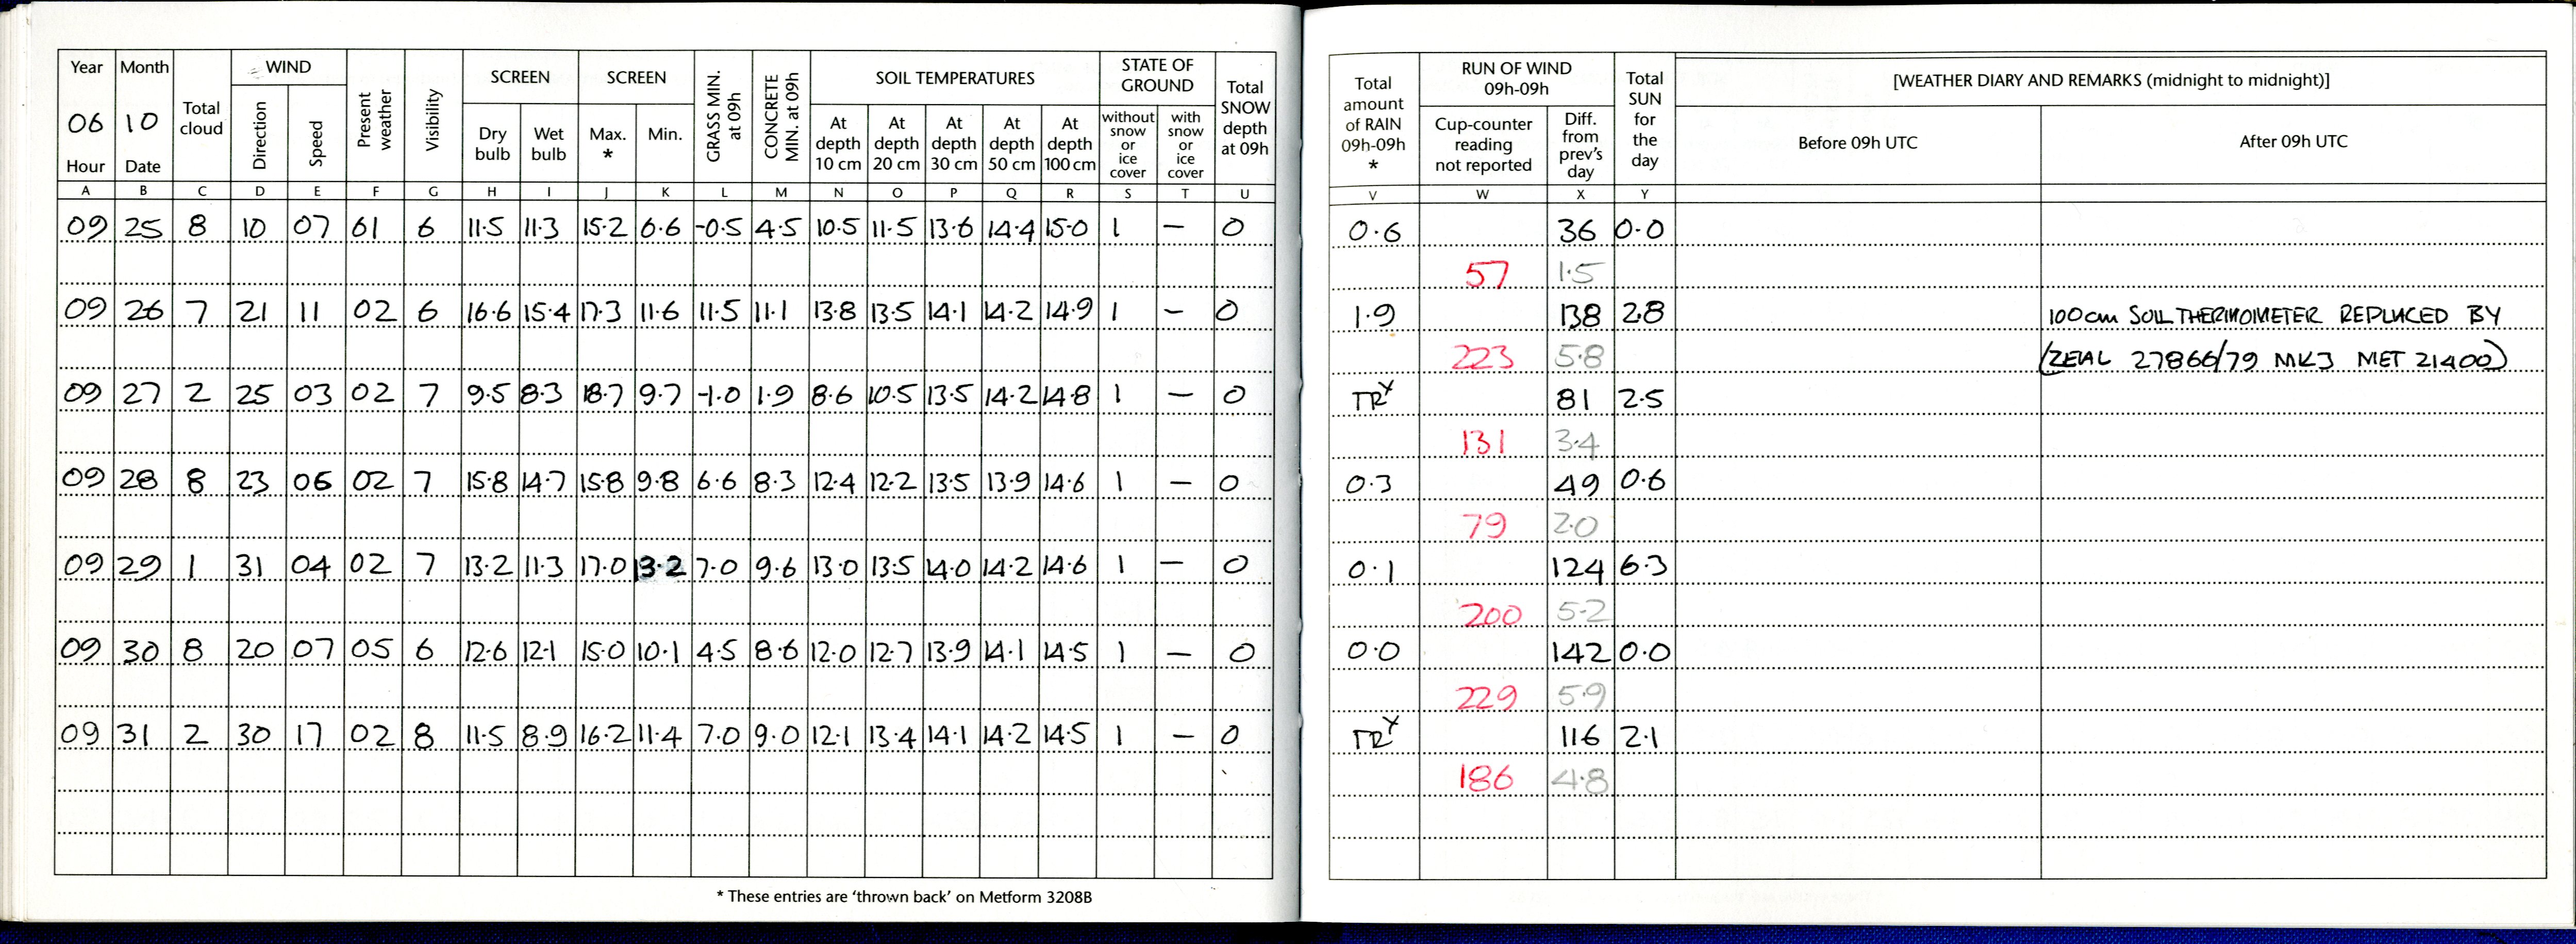 Year Month Total cloud WIND Present weather Visibility SCREEN SCREEN GRASS MIN. at 09h CONCRETE MIN. at 09h SOIL TEMPERATURES STATE OF GROUND Total SNOW depth at 09h Total amount of RAIN 09h-09h * RUN OF WIND 09h-09h Total SUN for the day [WEATHER DIARY AND REMARKS (midnight to midnight)]
06 10 Direction Speed Dry bulb Wet bulb Max. * Min. At depth 10 cm At depth 20 cm At depth 30 cm At depth 50 cm At depth 100 cm without snow or ice cover with snow or ice cover Cup-counter reading not reported Diff. from prev's day Before 09h UTC After 09h UTC
Hour Date
A B C D E F G H I J K L M N O P Q R S T U V W X Y
09 25 8 10 07 61 6 11.5 11.3 15.2 6.6 -0.5 4.5 10.5 11.5 13.6 14.4 15.0 1 — 0 0.6 36 0.0
57 1.5
09 26 7 21 11 02 6 16.6 15.4 17.3 11.6 11.5 11.1 13.8 13.5 14.1 14.2 14.9 1 — 0 1.9 138 2.8 100cm SOIL THERMOMETER REPLACED BY
223 5.8 (ZEAL 27866/79 MK3 MET 21400)
09 27 2 25 03 02 7 9.5 8.3 18.7 9.7 -1.0 1.9 8.6 10.5 13.5 14.2 14.8 1 — 0 TR 81 2.5
131 3.4
09 28 8 23 06 02 7 15.8 14.7 15.8 9.8 6.6 8.3 12.4 12.2 13.5 13.9 14.6 1 — 0 0.3 49 0.6
79 2.0
09 29 1 31 04 02 7 13.2 11.3 17.0 13.2 7.0 9.6 13.0 13.5 14.0 14.2 14.6 1 — 0 0.1 124 6.3
200 5.2
09 30 8 20 07 05 6 12.6 12.1 15.0 10.1 4.5 8.6 12.0 12.7 13.9 14.1 14.5 1 — 0 0.0 142 0.0
229 5.9
09 31 2 30 17 02 8 11.5 8.9 16.2 11.4 7.0 9.0 12.1 13.4 14.1 14.2 14.5 1 — 0 TR 116 2.1
186 4.8
* These entries are 'thrown back' on Metform 3208B